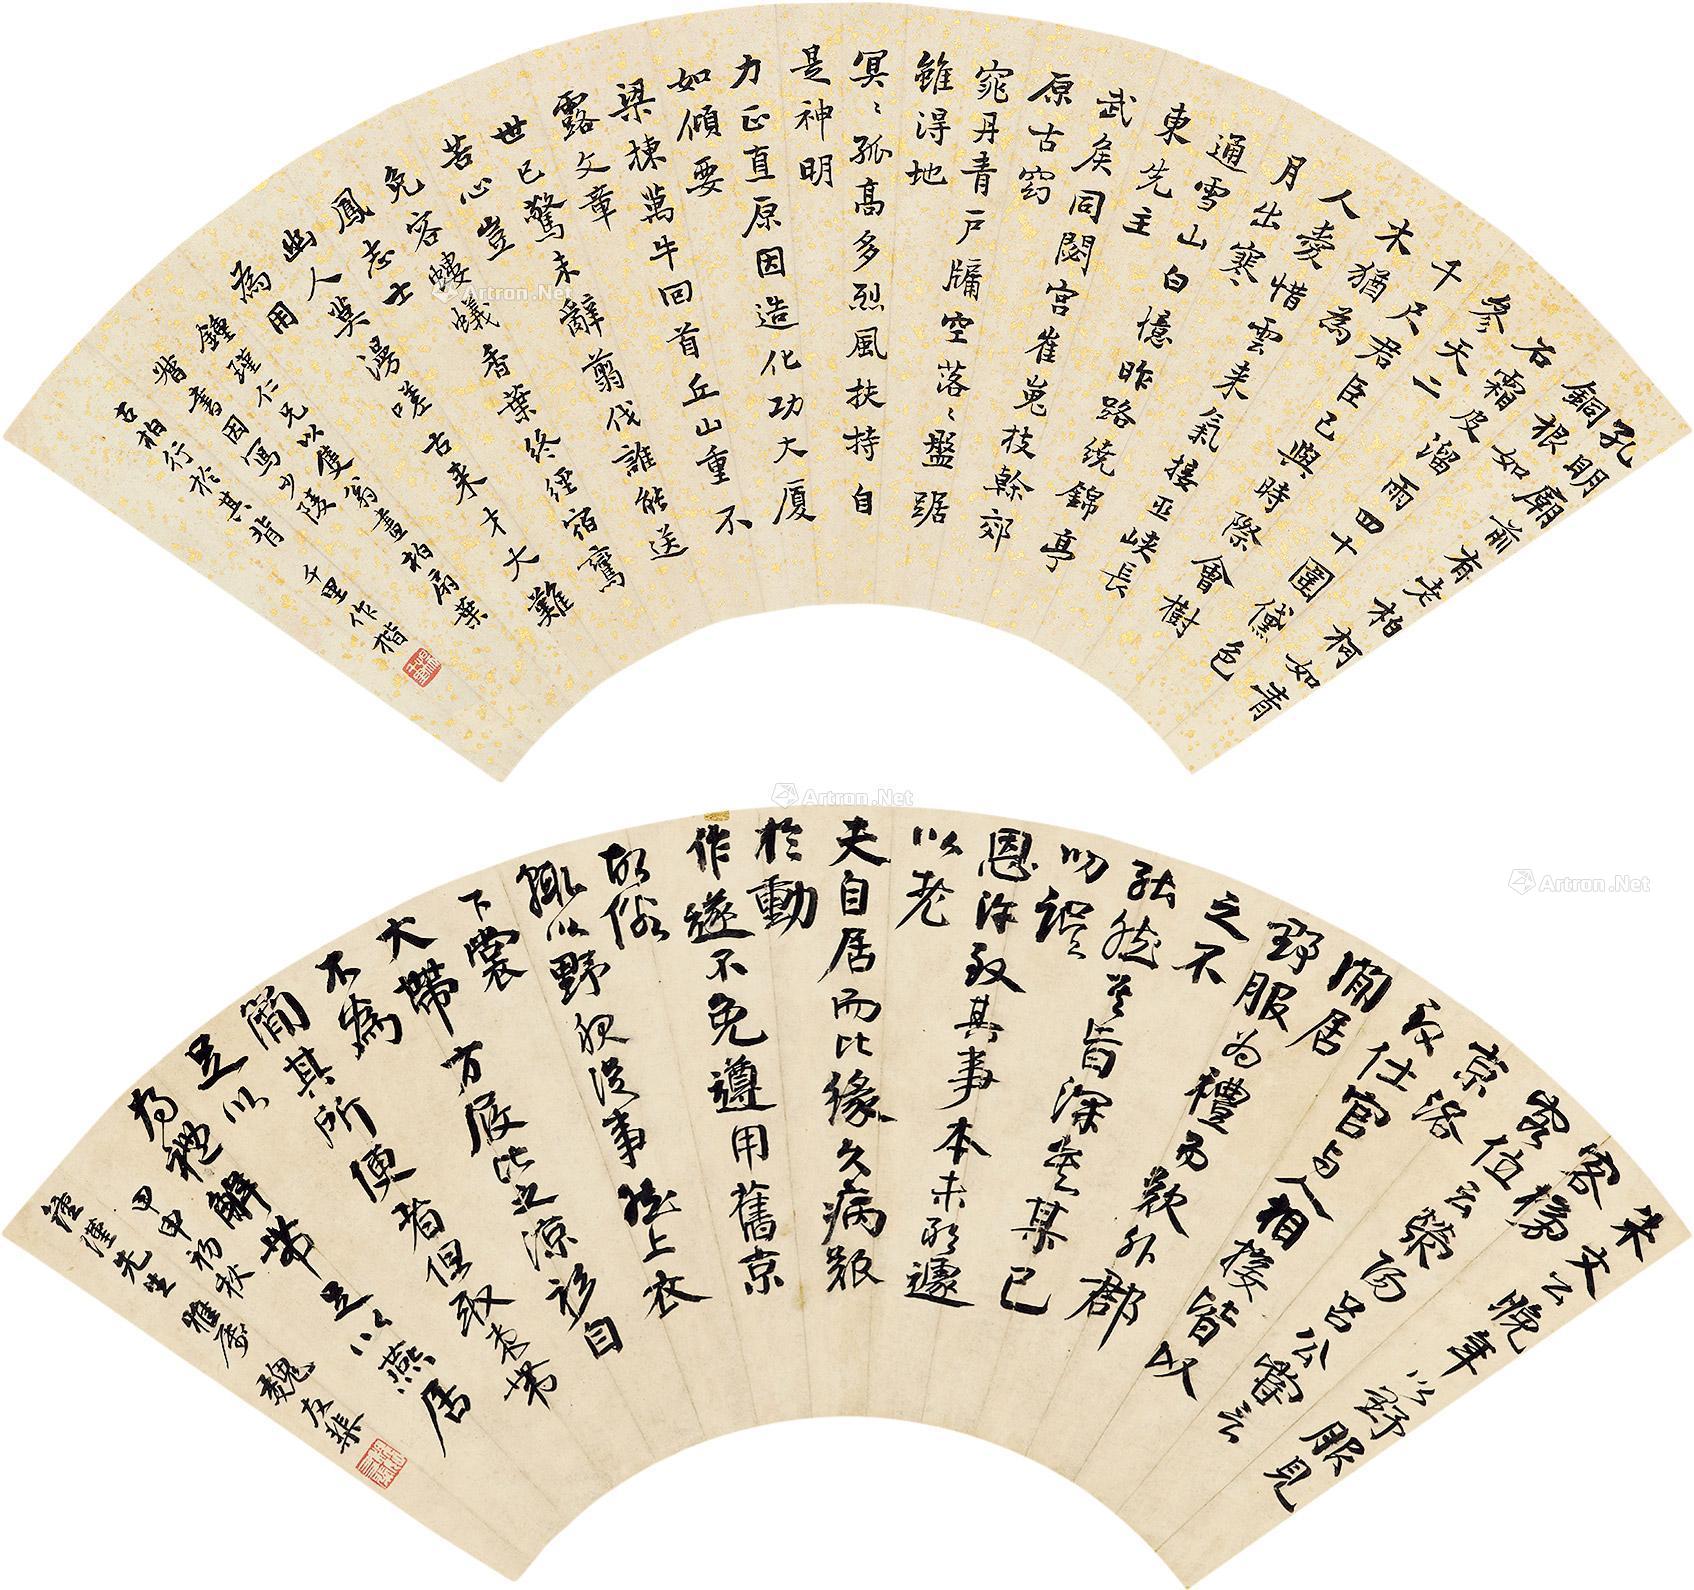 孔明廟前有老柏柯如青
銅根如
石霜皮溜雨四十圍黛色
參天二
千尺君臣已與時際會樹
木猶為
人愛惜雲来氣接巫峽長
月出寒
通雪山白憶昨路繞錦亭
東先主
武侯同閟宮崔嵬枝幹郊
原古窈
窕丹青戶牖空落〻盤踞
雖得地
冥〻孤高多烈風扶持自
是神明
力正直原因造化功大厦
如傾要
梁棟萬牛回首丘山重不
露文章
世已驚未辭翦伐誰能送
苦心豈
免容螻蟻香葉終經宿鸞
鳳志士
幽人莫漫嗟古来才大難
為用
鍾瑾仁兄以隻翁畫柏扇葉
嘱書因寫少陵
古柏行於其背 千里作楷
朱文公晚年以野服見
客榜
客位云滎陽呂公嘗言
京洛
致仕官与人相接皆以
閒居
野服为禮而歎外郡
之不
能然其旨深矣某已
叨誤
恩許致其事本未敢遽
以老
夫自居而比緣久病艱
於動
作遂不免遵用舊京
故俗
輒以野服從事然上衣
下裳
大帶方履比之涼衫自
不為
簡其所便者但取束帶
足以
為禮解帶足以燕居
甲申初秋
鍾瑾先生雅屬 魏友棐
Artron.Net
Artron.Net
Artron.Net